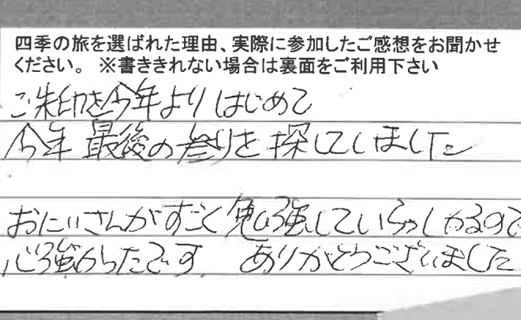 四季の旅を選ばれた理由、実際に参加したご感想をお聞かせ
ください。 ※書ききれない場合は裏面をご利用下さい
ご朱印を今年よりはじめて
今年最後の参りを探していました
おにいさんがすごく勉強していらっしゃるので
心強かったです ありがとうございました